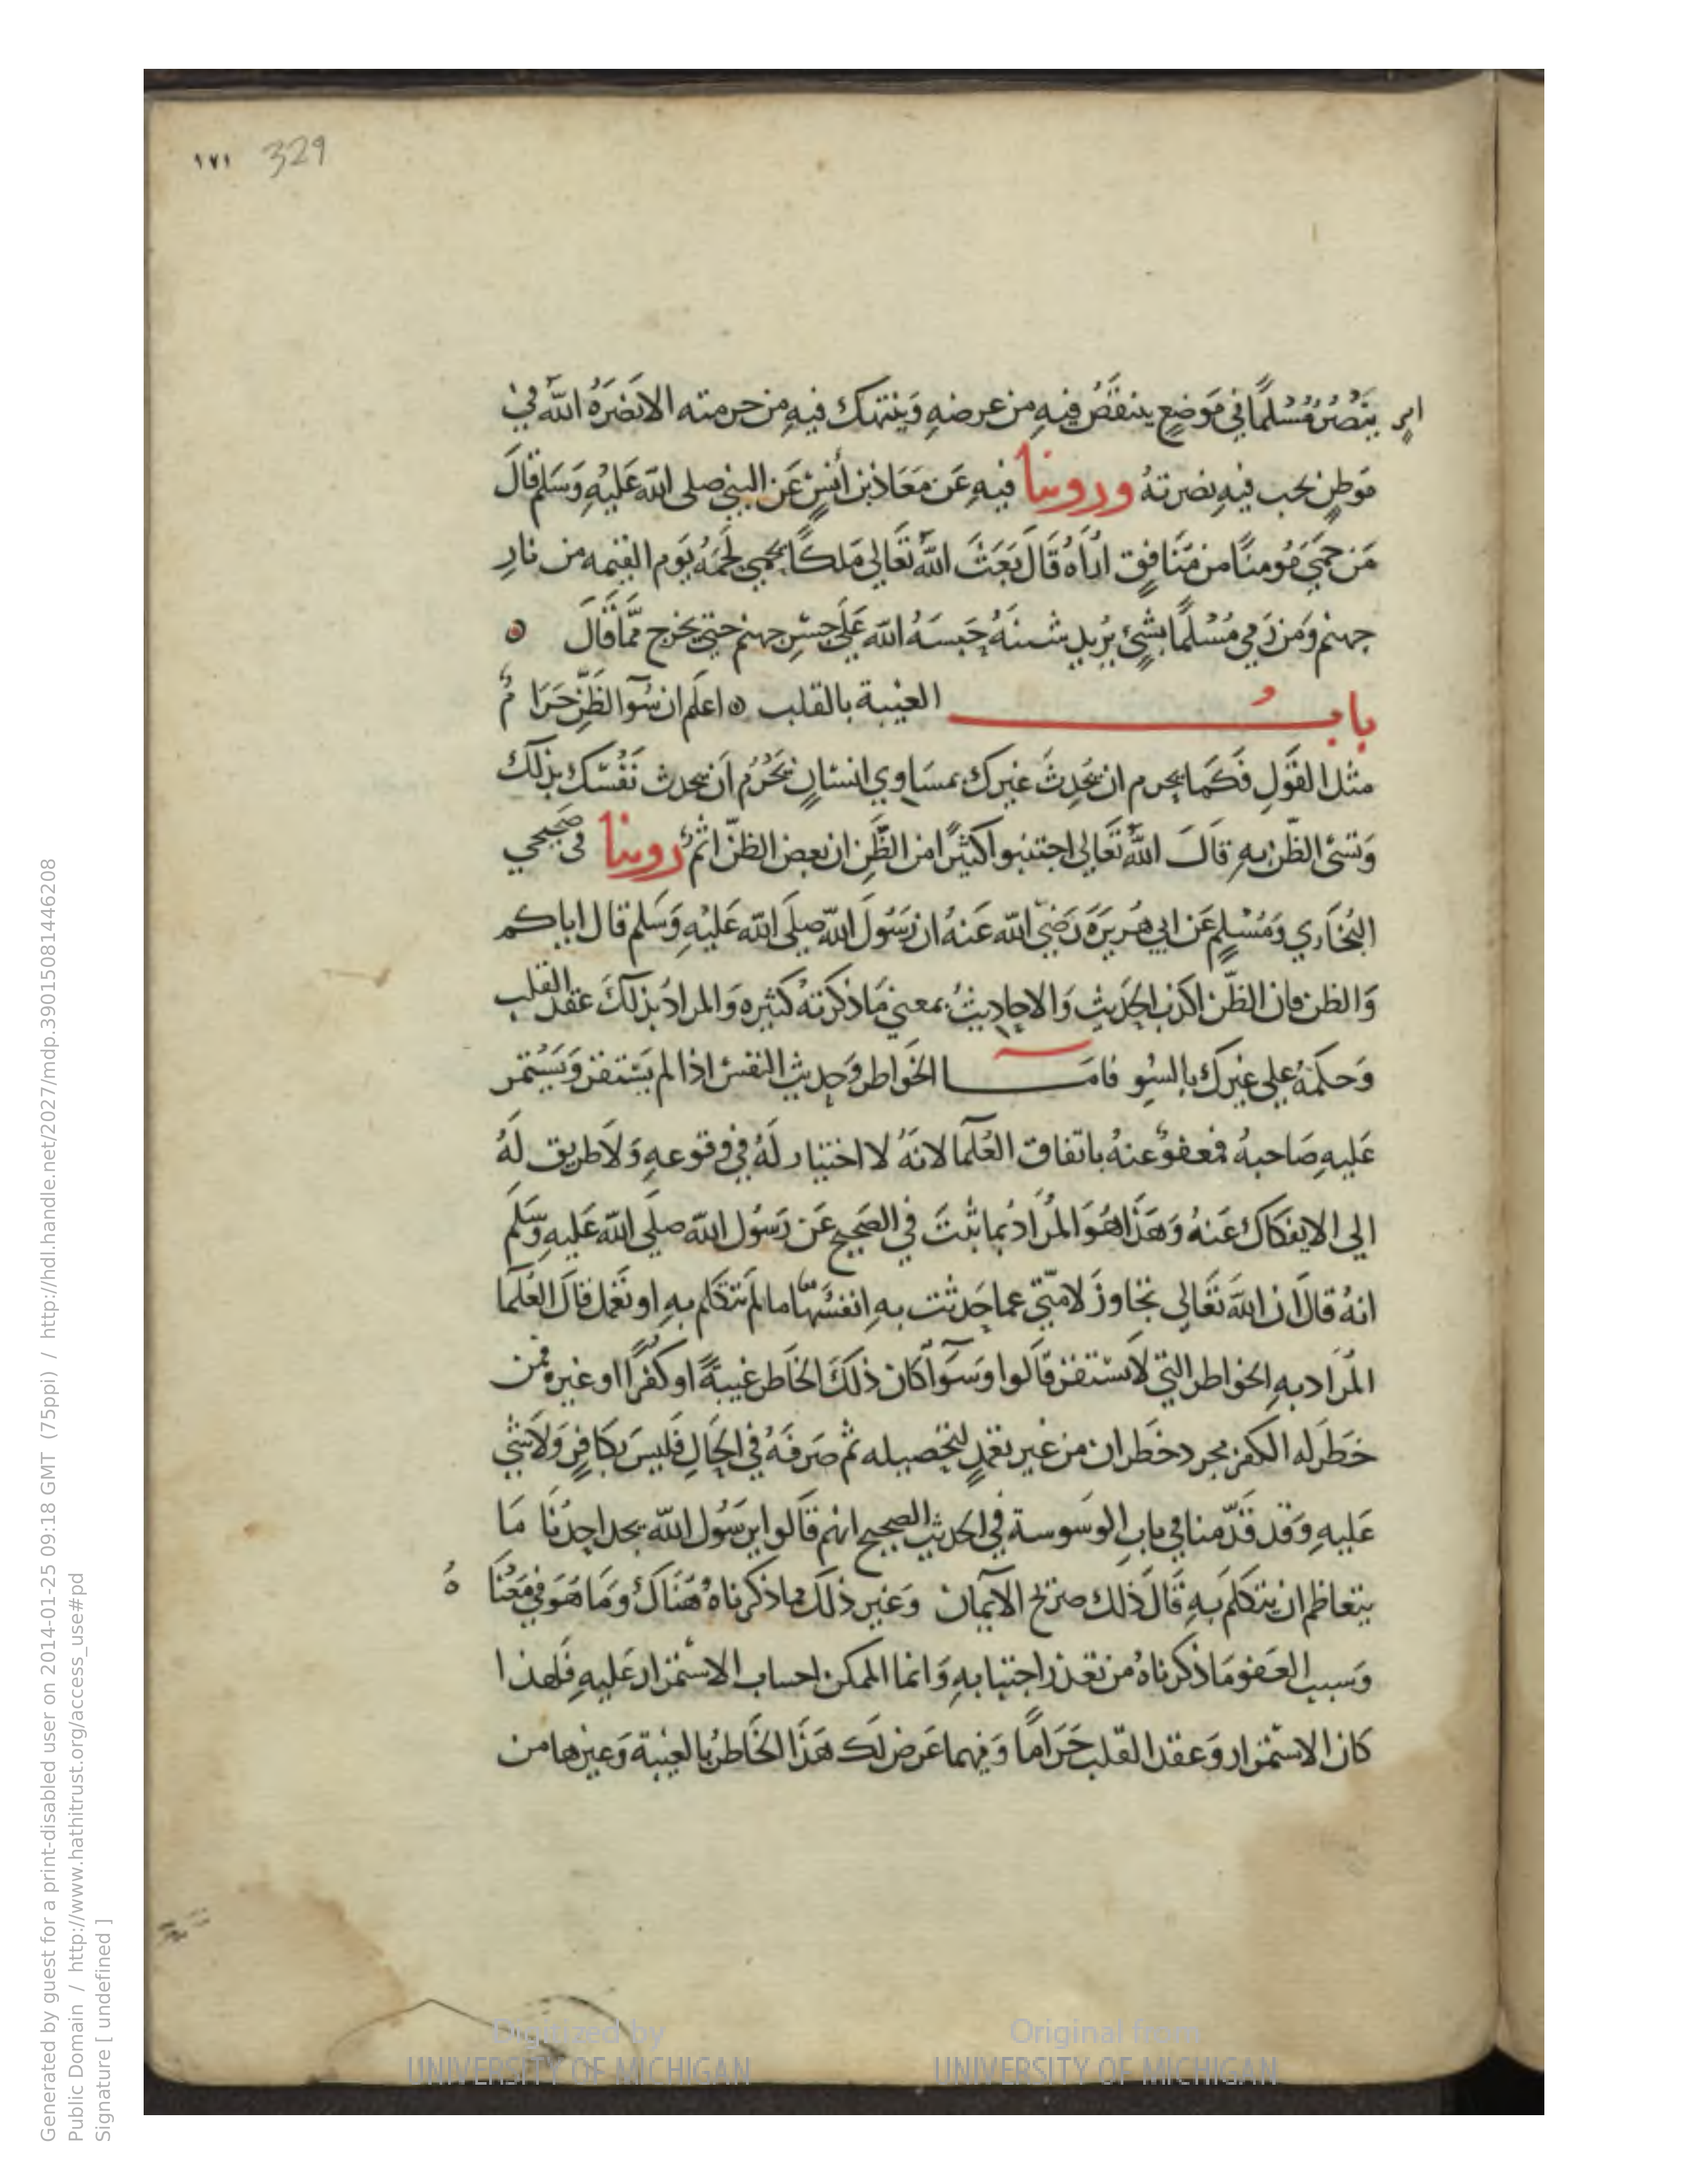 ١٧١ 329
امرٍ ينصُرُ مُسْلمًا في مَوضعٍ ينتقَصُ فيهِ من عرضهِ وَينتهك فيهِ من حرمته الا نصَرَهُ اللهُ في
مَوطِنٍ يحب فيهِ نصرتهُ وروينا فيهِ عَن مَعَاذ بن أنسٍ عَن النبي صلى الله عَليْهِ وَسَلم قالَ
مَن حمَيَ مَومنًا من مَنَافقٍ اُراهُ قَالَ بَعَثَ اللهُ تعَالي مَلكًا يحمي لحمَهُ يَوم القيمه من نارِ
جهنم وَمَن رَمي مُسْلمًا بشيءٍ يُريد شينهُ حَبسَهُ الله عَلَي جسْرِ جهنم حتي يخرج ممّا قَالَ
بابُ الغيبة بالقلب اعلم ان سُوَ الظَنّ حَرَامٌ
مثل القَولِ فكَما يحرم ان تُحَدِثَ غيرك بمسَاوي انسَانٍ يَحْرُم اَن تحدث نَفْسَك بذلكَ
وَتسيَ الظّن بهِ قالَ اللهُ تعَالي اجتنبوا كثيرًا من الظَنّ ان بعض الظنّ اثمٌ روينا في صَحيحي
البُخَاري وَمُسْلمٍ عَن ابي هُريرَة رَضيَ الله عَنهُ ان رَسُولَ الله صلَي الله عَليْهِ وَسَلم قال اياكم
وَالظن فان الظنّ اكذب الحَديثِ وَالاحاديثُ بمعني مَا ذكرتهُ كثيره وَالمرادُ بذلكَ عَقد القلب
وَحكمهُ علي غيرك بالسوِ فامَا الخَواطر وَحديث النفس اذا لم يَستقر وَيَستمر
عَليهِ صَاحبهُ فمعفوٌ عنهُ باتفاق العُلَمآ لانهُ لا اختيار لهُ في وقوعهِ وَلا طريق لهُ
الي الانفكاك عَنهُ وَهَذا هُوَ المُرَادُ بما ثبتَ في الصَحيحِ عَن رَسُول الله صلَي الله عَليهِ وَسَلم
انهُ قالَ ان اللهَ تعَالي تجاوزَ لامتي عما حَدثت بهِ انفسَهَا ما لم تتكلم بهِ او تَعْمل قالَ العُلمآ
المُرَاد بهِ الخواطر التي لا تستقر قالوا وسَوآ كان ذلكَ الخاطر غيبةً او كُفرًا او غيره فمن
خَطَر له الكفر مجرد خطران من غير تعمدٍ لتحصيله ثم صَرفهُ في الحَالِ فليسَ بكافرٍ وَلا شيَ
عَليهِ وَقد قدّمنا في بابِ الوَسوسة في الحديث الصحيح انهم قالوا يرسُول الله يجد احدُنا مَا
يتعاظم ان يتكلم بهِ قالَ ذلك صرَيح الايمان وَغير ذلكَ مما ذكرناهُ هُنَاكَ وَمَا هُوَ في مَعْنَاهُ
وسَبب العَفو مَا ذكرناهُ من تعذر اجتنابهِ وَانما الممكن اجتناب الاستمرار عَليهِ فلهذا
كان الاستمرار وَعَقد القلب حَرَامًا وَمهما عَرض لك هَذا الخَاطر بالغيبة وَغيرها من
Digitized by
UNIVERSITY OF MICHIGAN
Original from
UNIVERSITY OF MICHIGAN
Generated by guest for a print-disabled user on 2014-01-25 09:18 GMT (75ppi) / http://hdl.handle.net/2027/mdp.39015081446208
Public Domain / http://www.hathitrust.org/access_use#pd
Signature [ undefined ]